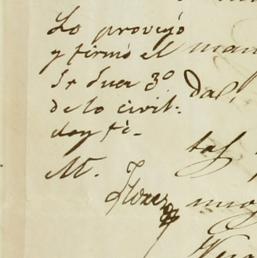 Lo proveyó
y firmó el man
Sr Juez 3º dad,
de lo civil.
doy fé.
M.
Florez